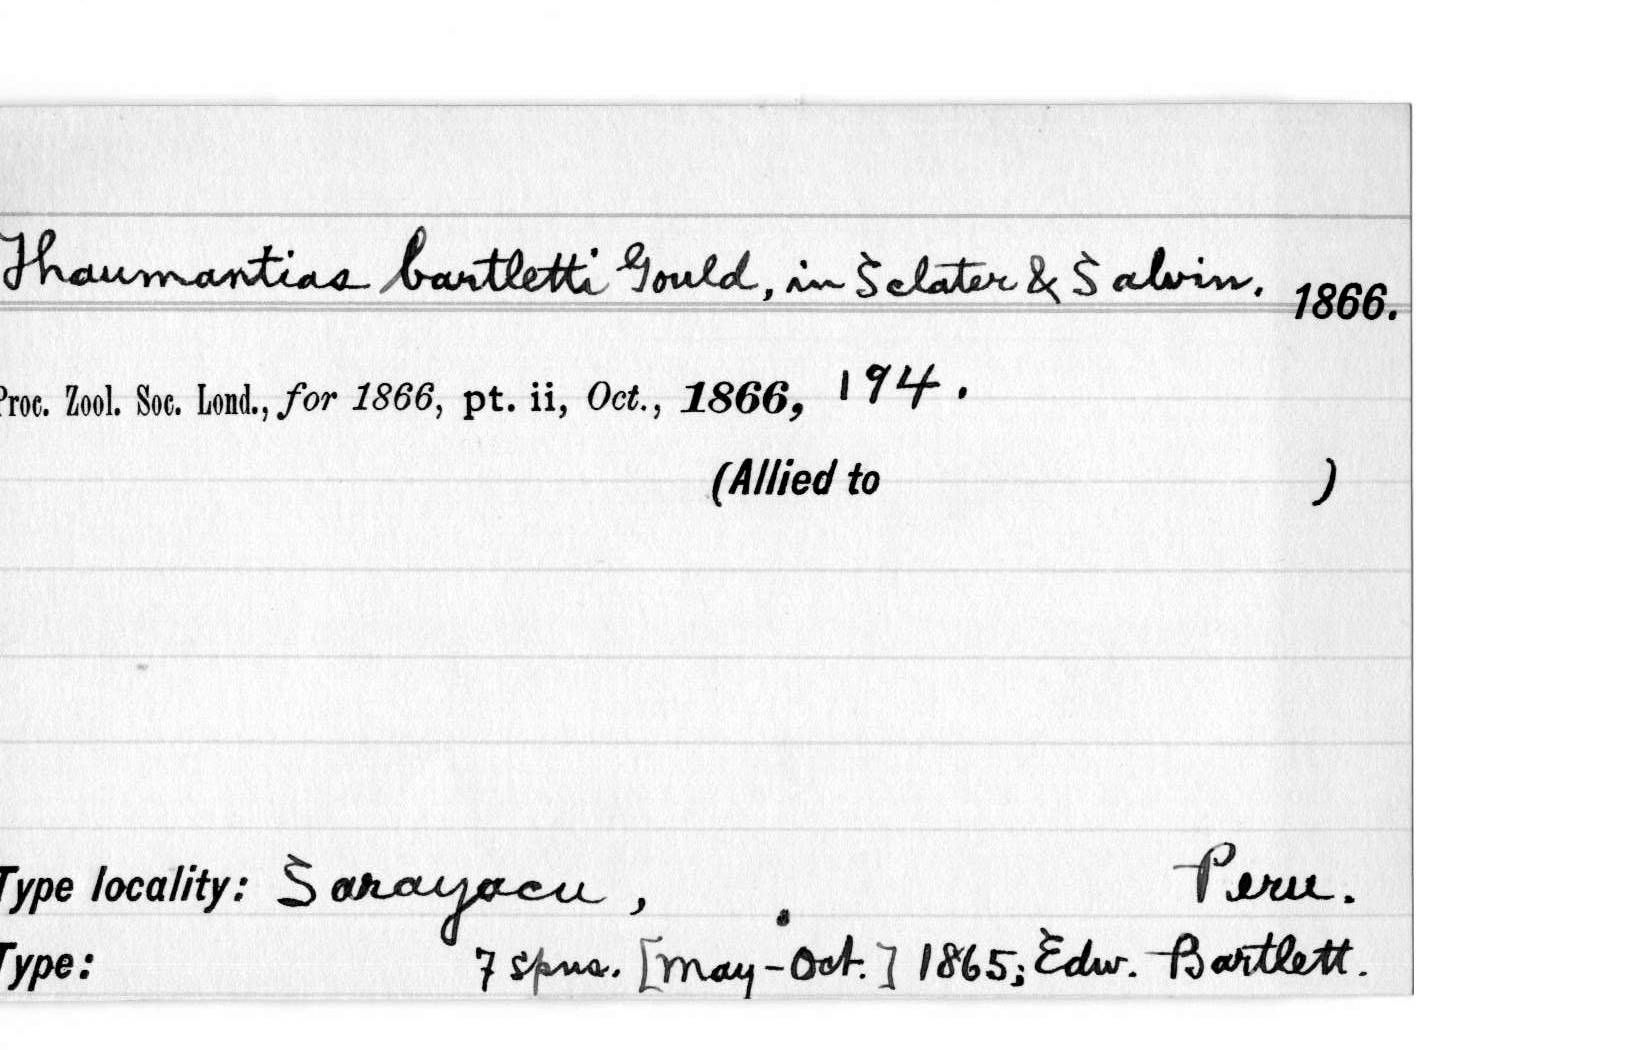 Thaumantias bartletti Gould, in Sclater & Salvin. 1866.
Proc. Zool. Soc. Lond., for 1866, pt. ii, Oct., 1866, 194.
(Allied to )
Type locality: Sarayacu, Peru.
Type: 7 spns. [May-Oct.] 1865; Edw. Bartlett.